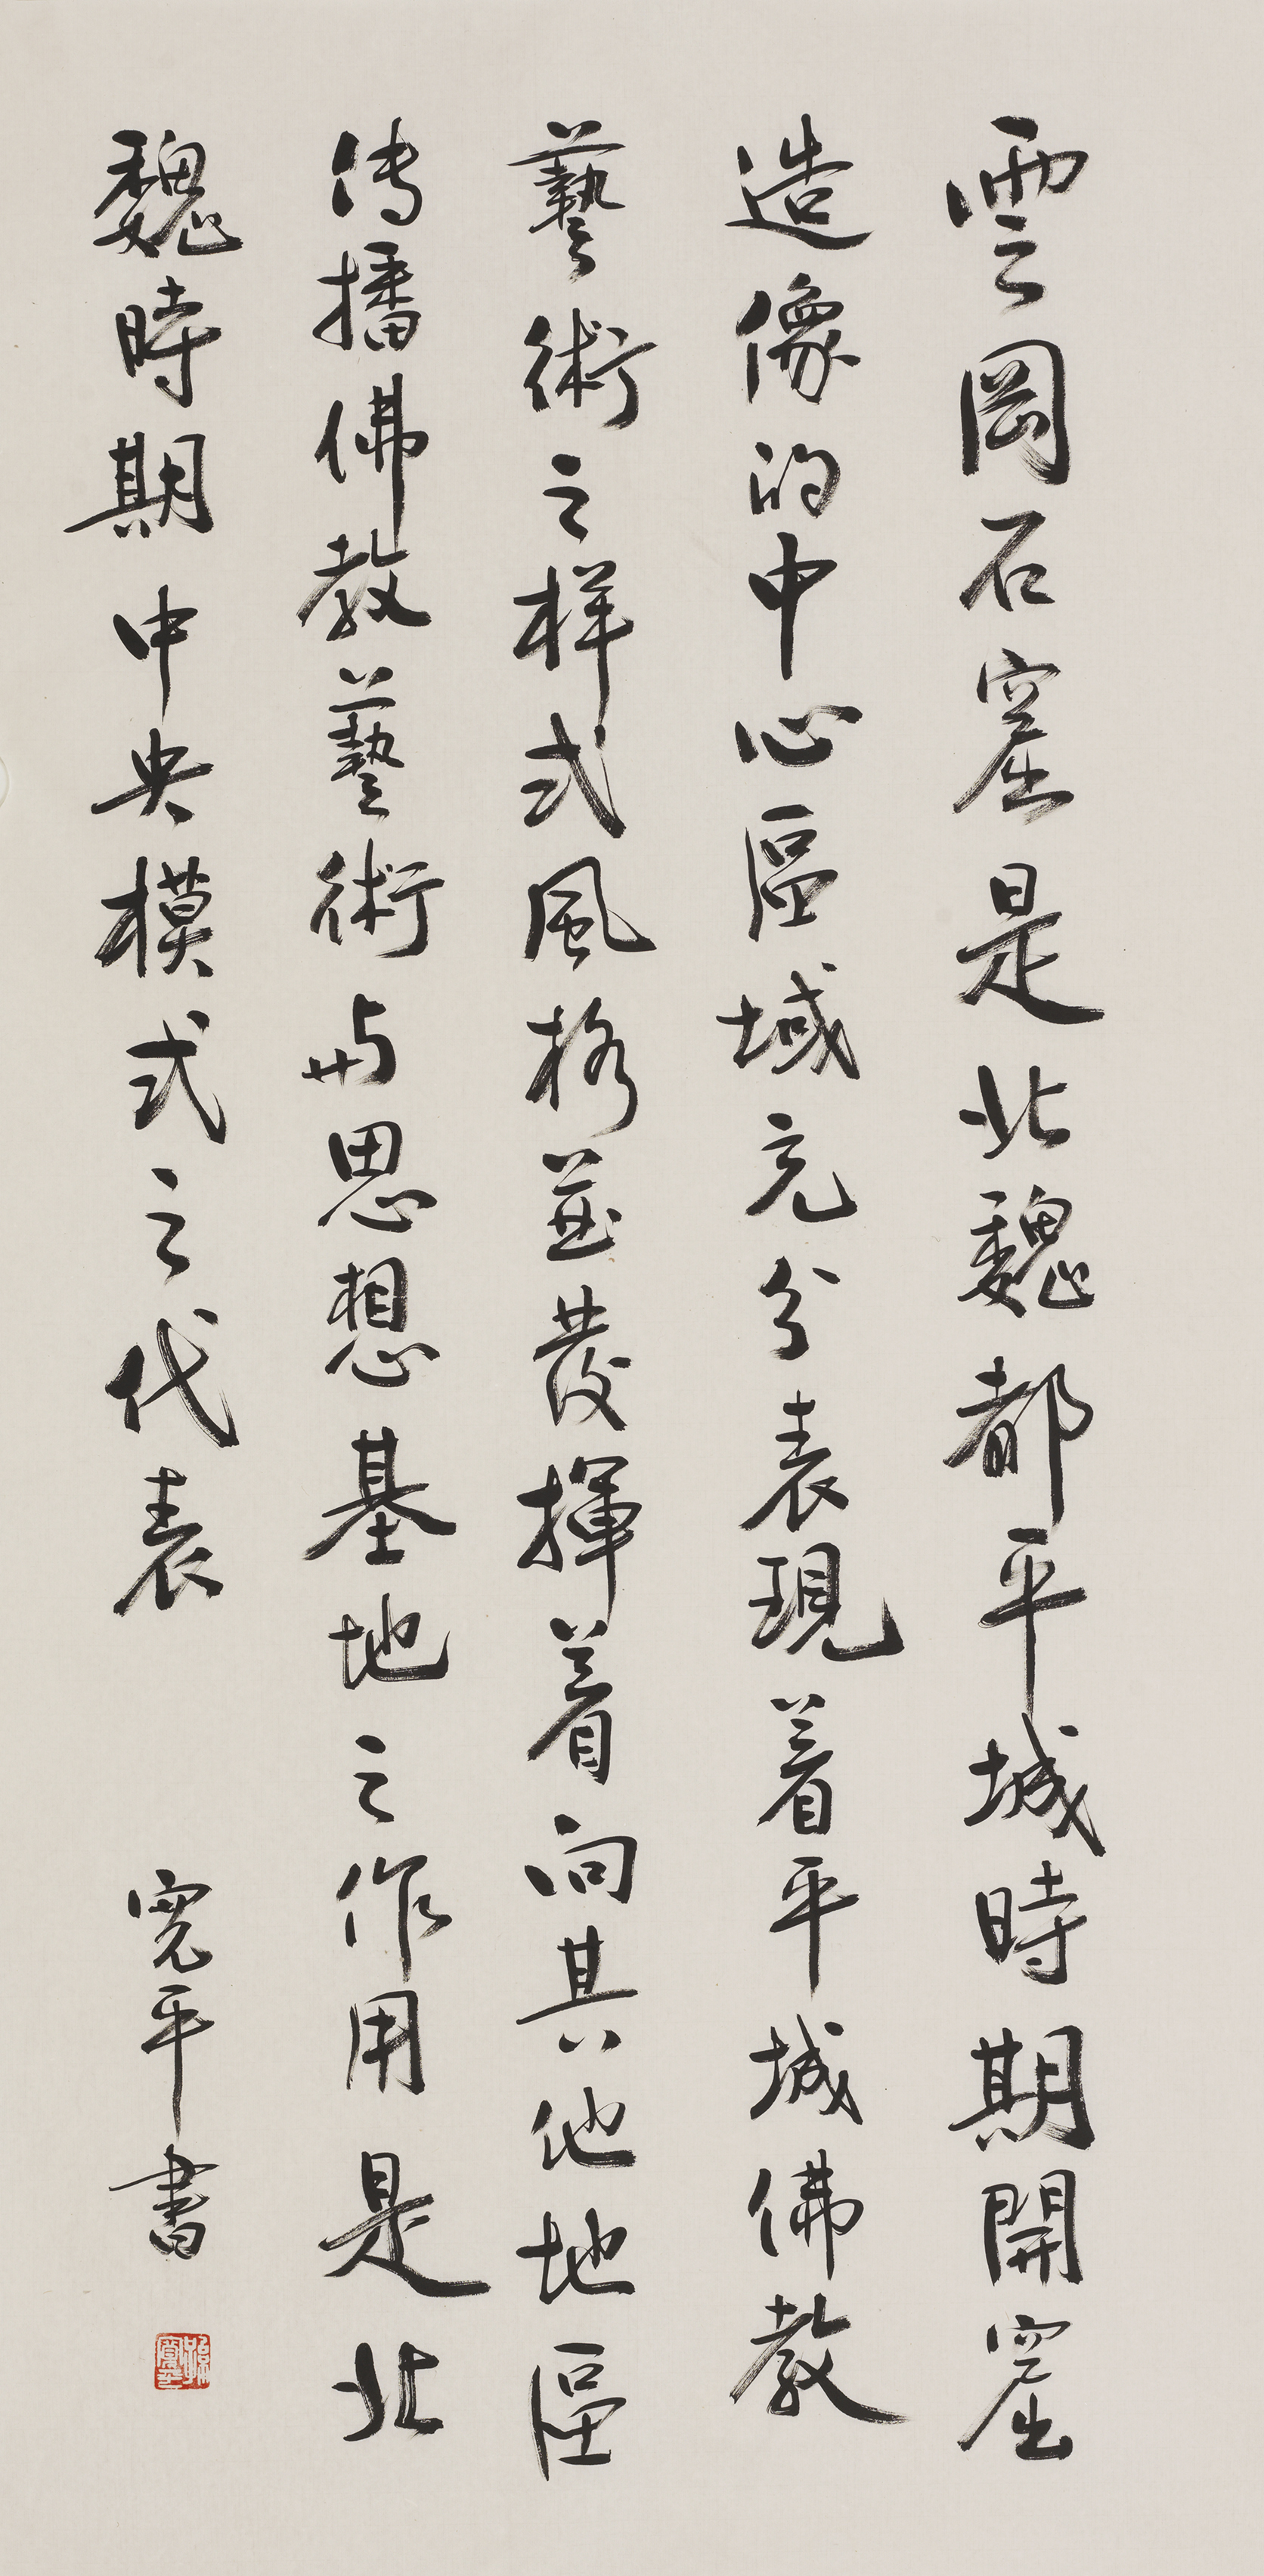 雲岡石窟是北魏都平城時期開窟
造像的中心區域充分表現着平城佛教
藝術之樣式風格並發揮着向其他地區
傳播佛教藝術與思想基地之作用是北
魏時期中央模式之代表
寬平書